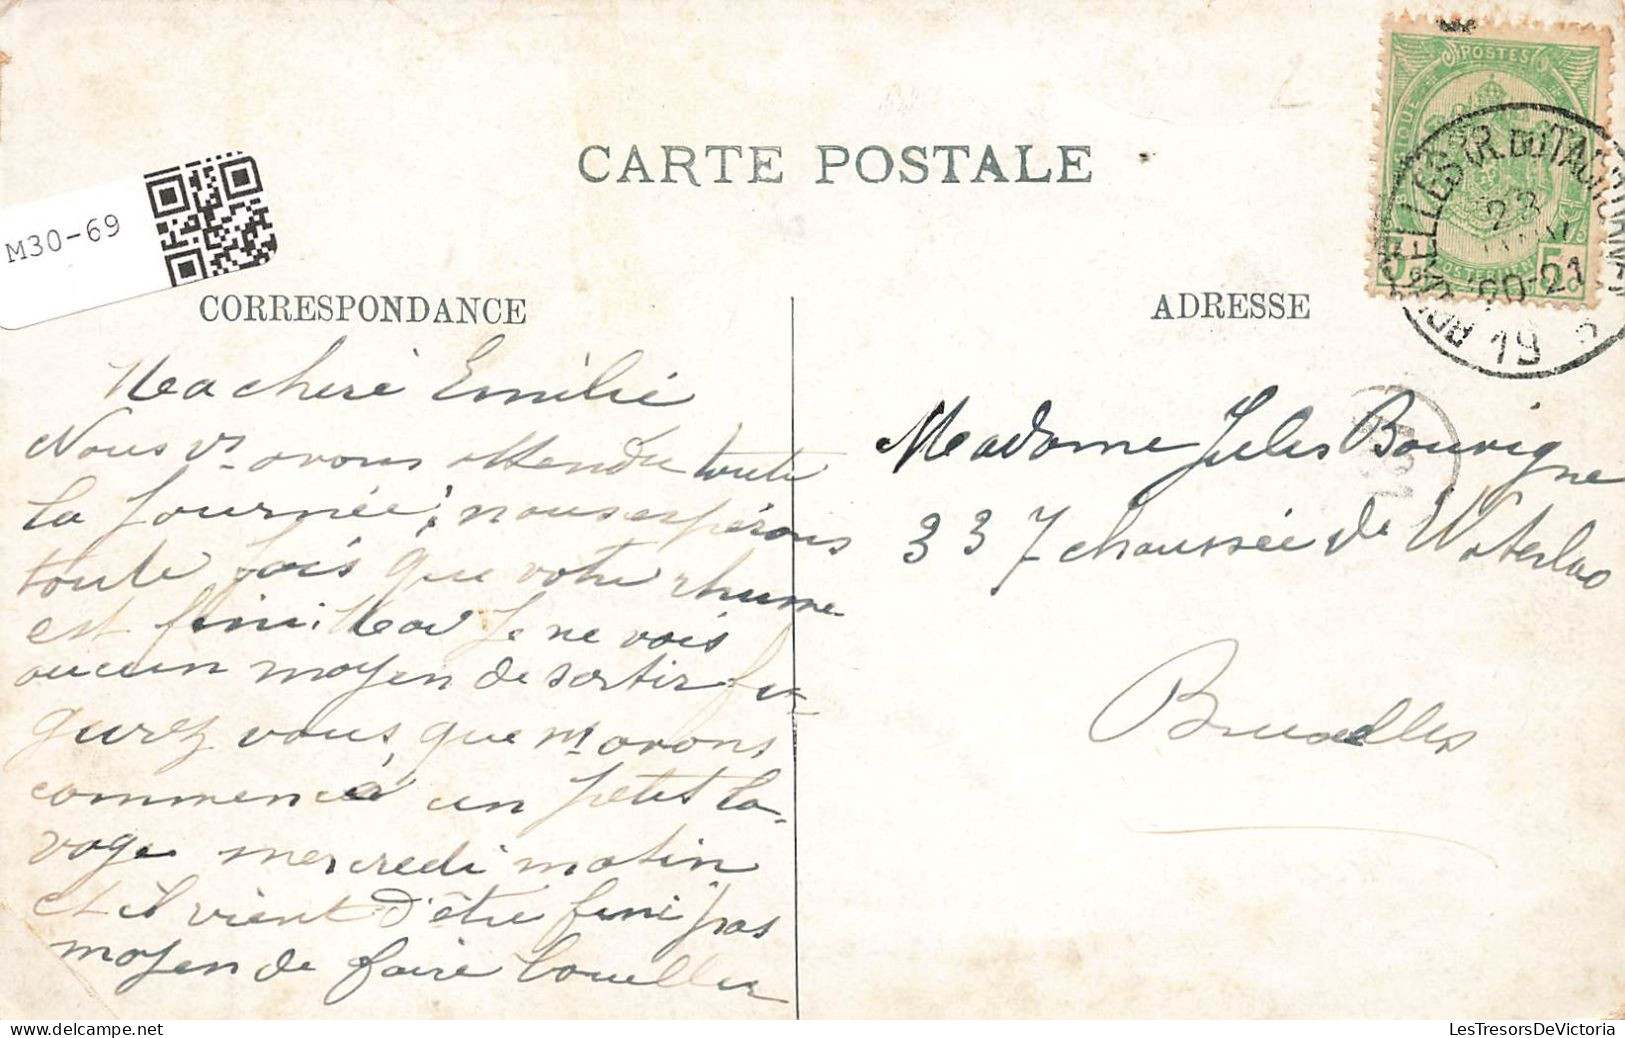 CARTE POSTALE
M30-69
CORRESPONDANCE
Ma chere Emilie
Nous vs avons attendu toute
la journée; nous espérons
toute fois que votre rhume
est fini; Moi Je ne vois
aucun moyen de sortir fi-
gurez vous, que ns avons
commencé un petit la-
vage mercredi matin
et il vient d'être fini pas
moyen de faire
ADRESSE
POSTES
5 5
20-21
19
Madame Jules Bouvigne
337 chaussée de Waterloo
Bruxelles
LesTresorsDeVictoria
LesTresorsDeVictoria.com